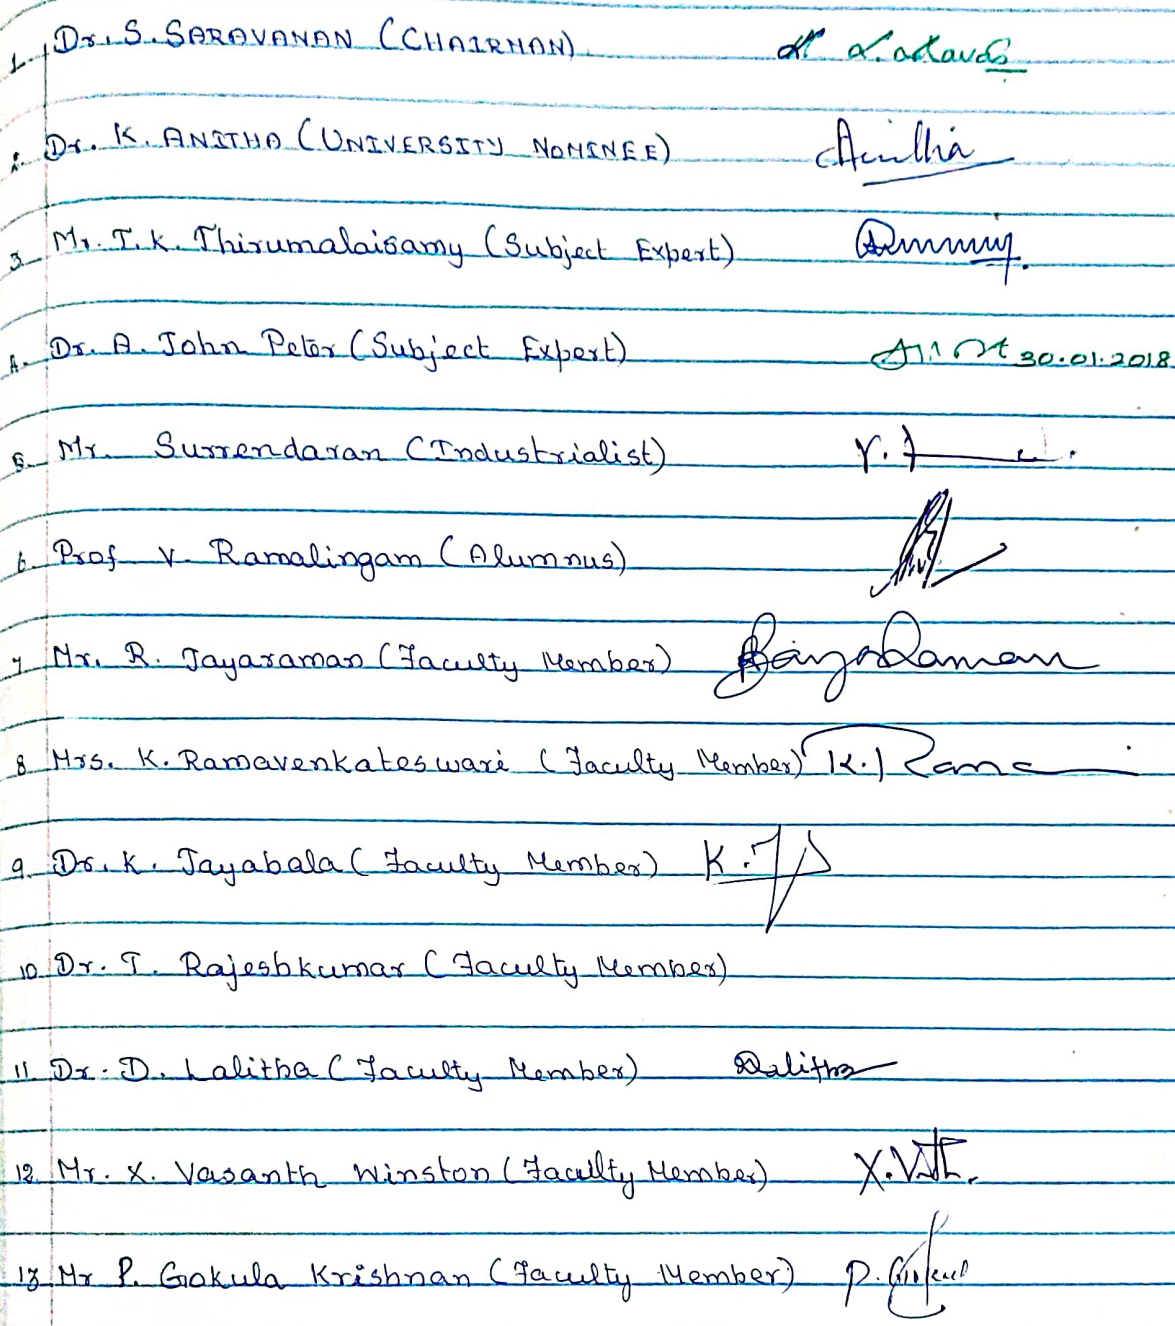 1. Dr. S. SARAVANAN (CHAIRMAN)
2. Dr. K. ANITHA (UNIVERSITY NOMINEE) Anitha
3. Mr. T. K. Thirumalaisamy (Subject Expert)
4. Dr. A. John Peter (Subject Expert) 30.01.2018
5. Mr. Surrendaran (Industrialist)
6. Prof V. Ramalingam (Alumnus)
7. Mr. R. Jayaraman (Faculty Member)
8 Mrs. K. Ramavenkateswari (Faculty Member)
9. Dr. K. Jayabala (Faculty Member)
10. Dr. T. Rajeshkumar (Faculty Member)
11 Dr. D. Lalitha (Faculty Member) Dalitha
12. Mr. X. Vasanth Winston (Faculty Member)
13 Mr P. Gokula Krishnan (Faculty Member)